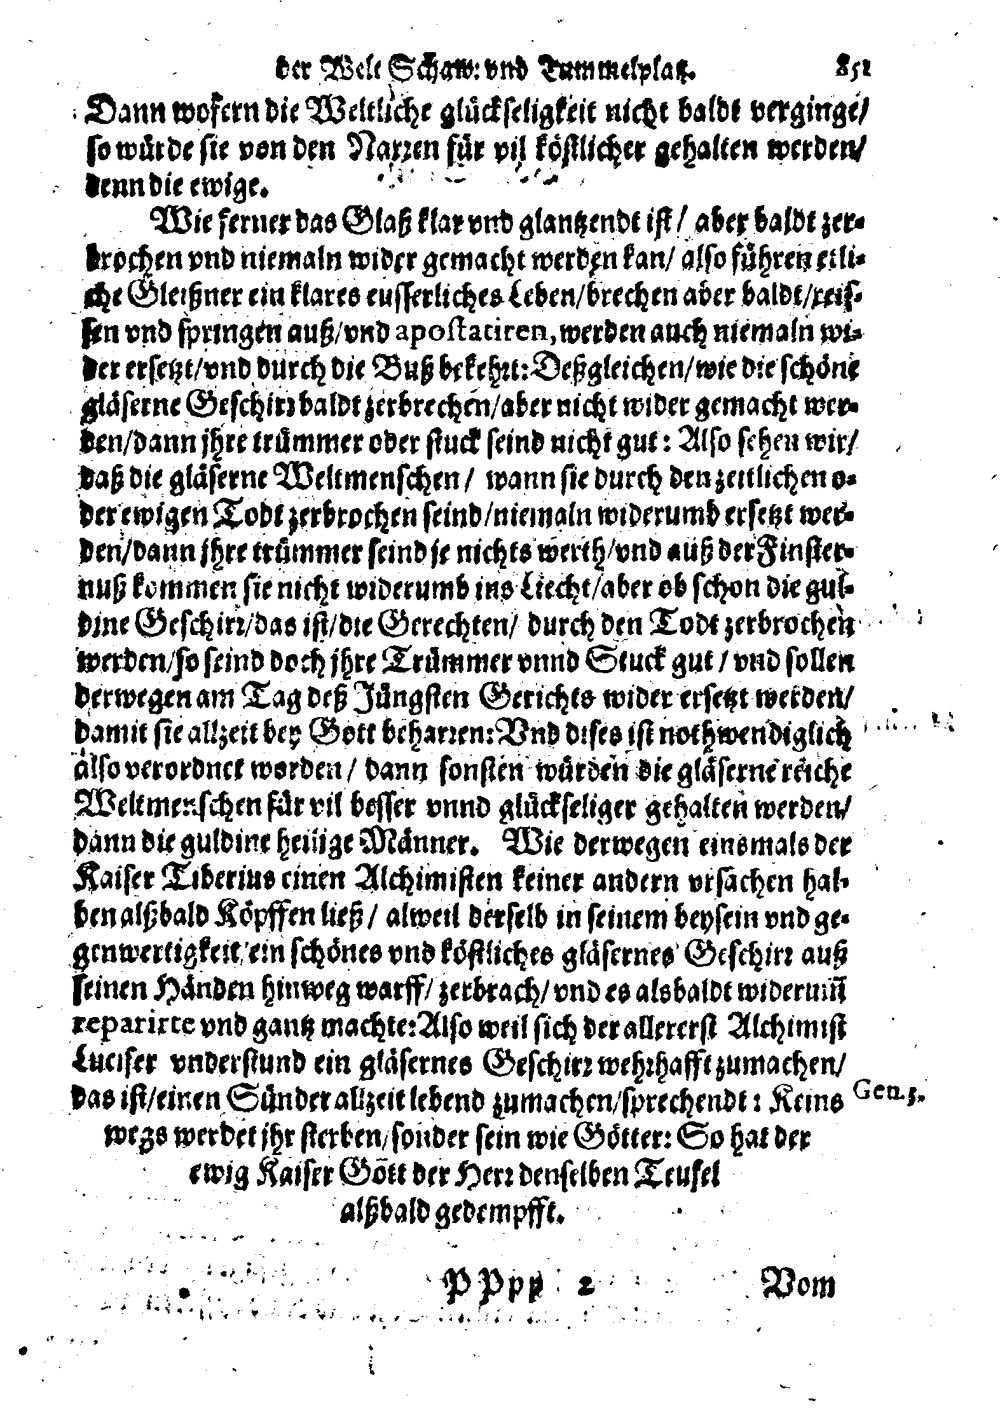 der Welt Schaw: vnd Tummelplatz. 851
Dann wofern die Weltliche glückseligkeit nicht baldt verginge/
so würde sie von den Narren für vil köstlicher gehalten werden/
denn die ewige.
Wie ferner das Glaß klar vnd glantzendt ist/ aber baldt zer-
brochen vnd niemaln wider gemacht werden kan/ also führen etli-
che Gleißner ein klares eusserliches Leben/brechen aber baldt/reis-
sen vnd springen auß/vnd apostatiren, werden auch niemaln wi-
der ersetzt/vnd durch die Buß bekehrt: Deßgleichen/wie die schöne
gläserne Geschirr baldt zerbrechen/aber nicht wider gemacht wer-
den/dann jhre trümmer oder stuck seind nicht gut: Also sehen wir/
daß die gläserne Weltmenschen/ wann sie durch den zeitlichen o-
der ewigen Todt zerbrochen seind/niemaln widerumb ersetzt wer-
den/dann jhre trümmer seind je nichts werth/vnd auß der Finster-
nuß kommen sie nicht widerumb ins Liecht/aber ob schon die gul-
dine Geschirr/das ist/die Gerechten/ durch den Todt zerbrochen
werden/so seind doch jhre Trümmer vnnd Stuck gut/vnd sollen
derwegen am Tag deß Jüngsten Gerichts wider ersetzt werden/
damit sie allzeit bey Gott beharren: Vnd dises ist nothwendiglich
also verordnet worden/ dann sonsten würden die gläserne reiche
Weltmenschen für vil besser vnnd glückseliger gehalten werden/
dann die guldine heilige Männer. Wie derwegen einsmals der
Kaiser Tiberius einen Alchimisten keiner andern vrsachen hal-
ben alßbald Köpffen ließ/ alweil derselb in seinem beysein vnd ge-
genwertigkeit/ein schönes vnd köstliches gläsernes Geschirr auß
seinen Händen hinweg warff/ zerbrach/ vnd es alsbaldt widerum̃
reparirte vnd gantz machte: Also weil sich der allererst Alchimist
Lucifer vnderstund ein gläsernes Geschirr wehrhafft zumachen/
das ist/einen Sünder allzeit lebend zumachen/sprechendt: Keins Gen. 3.
wegs werdet jhr sterben/sonder sein wie Götter: So hat der
ewig Kaiser Gott der Herr denselben Teufel
alßbald gedempfft.
PPpp 2 Vom